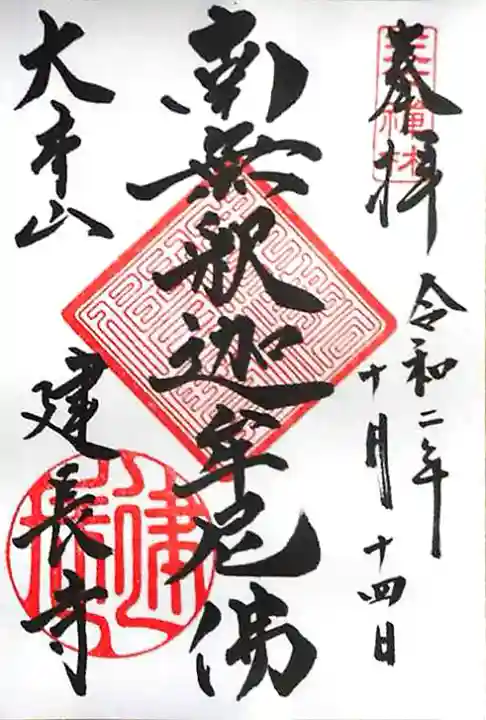 奉拝
令和二年
十月十四日
南無釈迦牟尼佛
大本山
建長寺